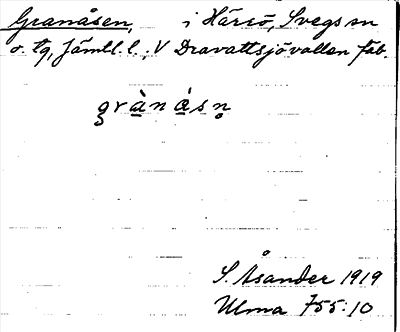 Granåsen, i Härrö, Svegs sn
o. tg, Jämtl. l.; V Dravattsjövallen fäb.
grànåsn
S. Åsander 1919
Ulma 755:10